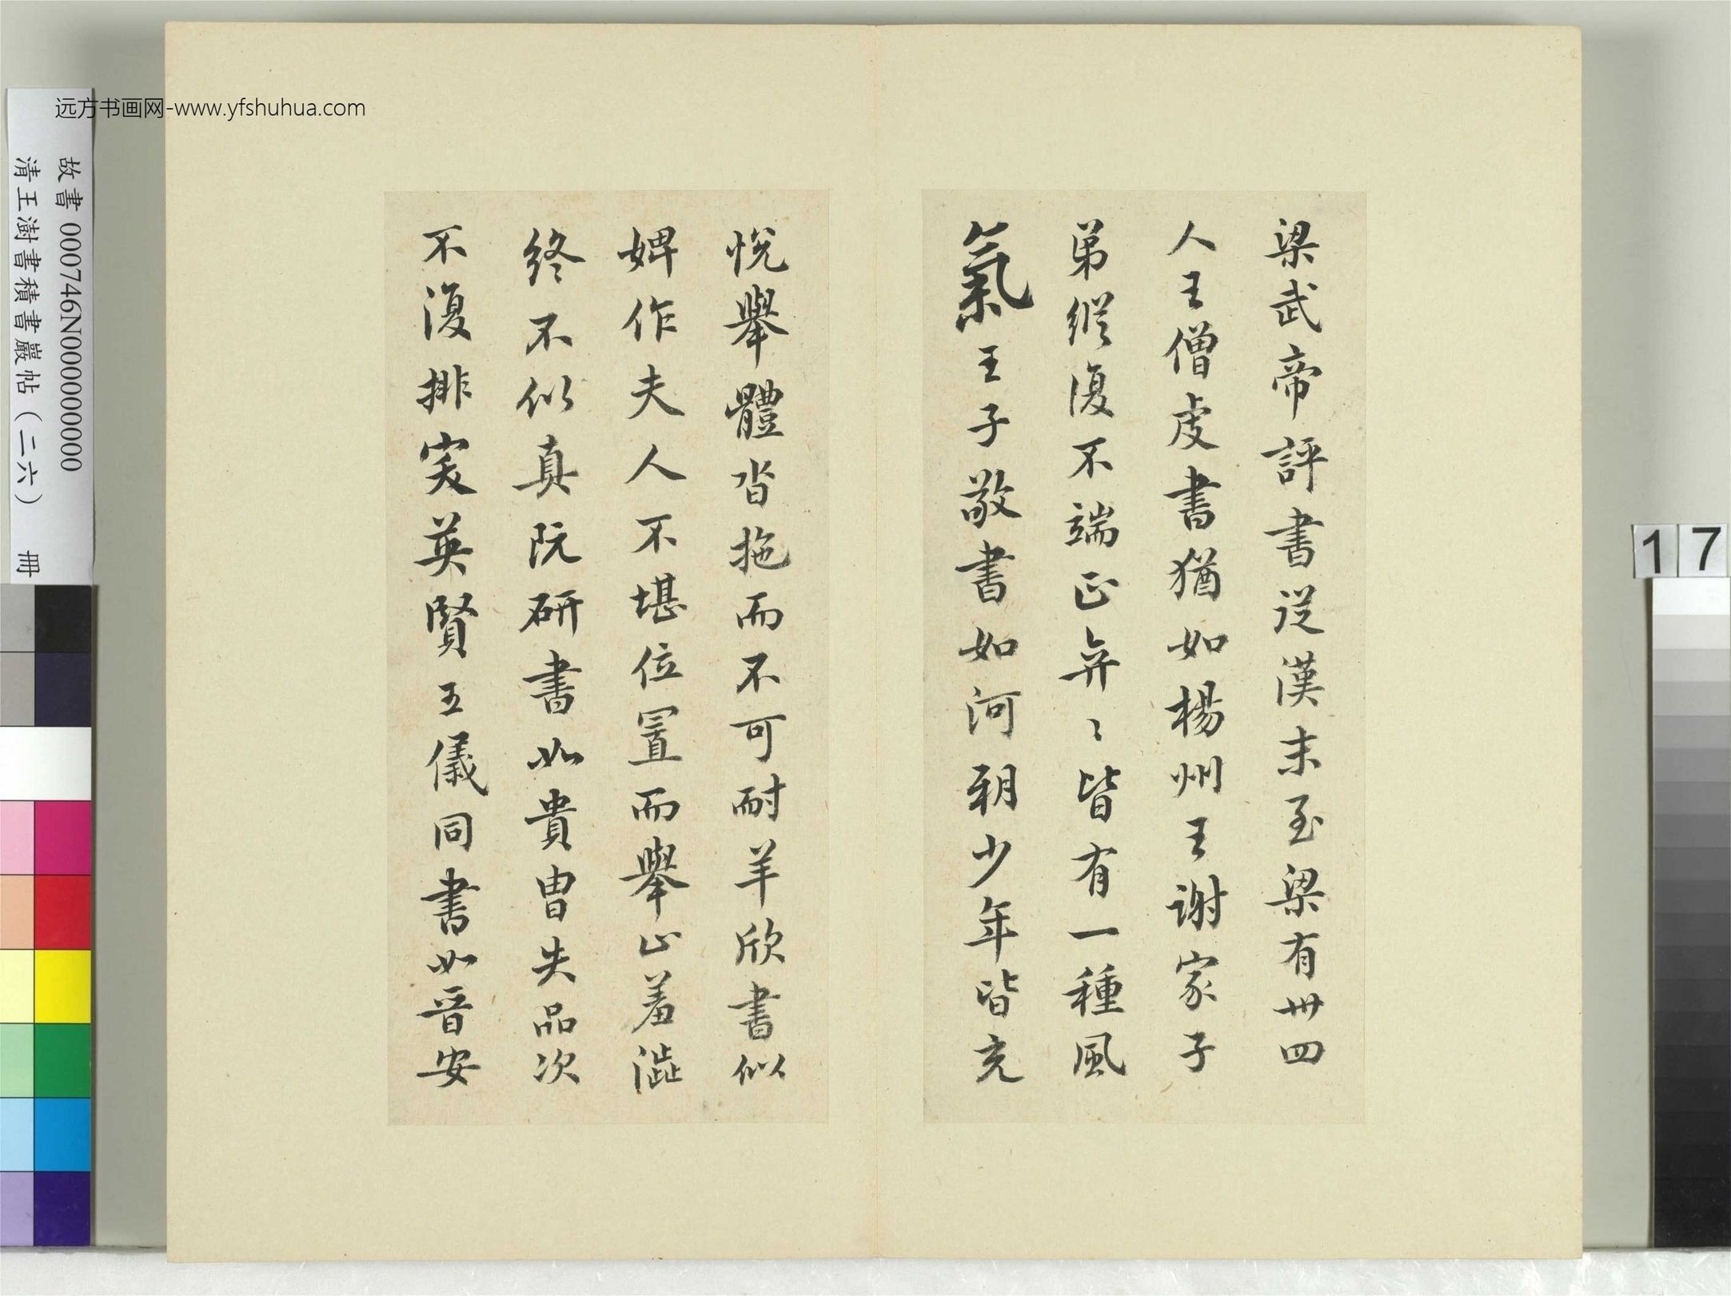 远方书画网-www.yfshuhua.com
故書 000746N000000000
清王澍書積書巖帖（二六） 冊
17
梁武帝評書從漢末至梁有卅四
人王僧虔書猶如楊州王謝家子
弟縱復不端正弈〻皆有一種風
氣王子敬書如河朔少年皆充
悅舉體沓拖而不可耐羊欣書似
婢作夫人不堪位置而舉止羞澁
終不似真阮研書如貴胄失品次
不復排突英賢王儀同書如晉安